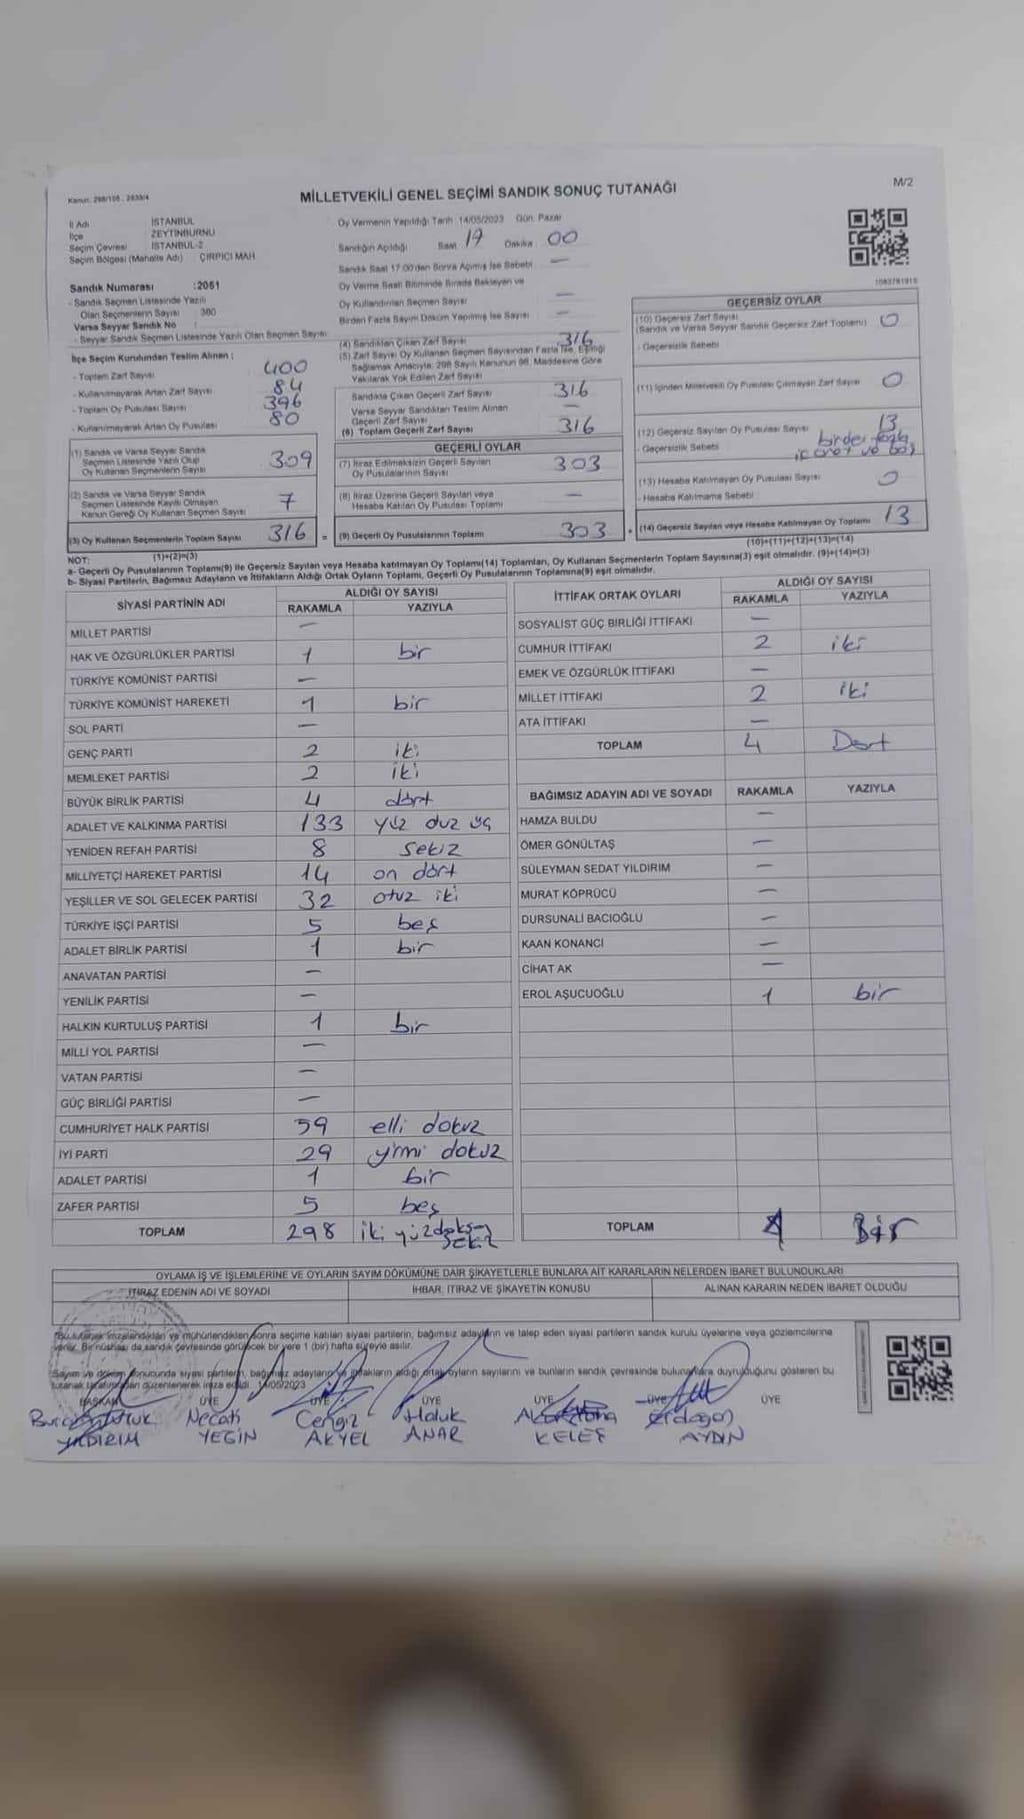 Kanun: 298/105 - 2839/4
MİLLETVEKİLİ GENEL SEÇİMİ SANDIK SONUÇ TUTANAĞI
M/2
İl Adı İSTANBUL
İlçe ZEYTİNBURNU
Seçim Çevresi İSTANBUL-2
Seçim Bölgesi (Mahalle Adı) ÇIRPICI MAH.
Oy Vermenin Yapıldığı Tarih :14/05/2023 Gün: Pazar
Sandığın Açıldığı Saat 17 Dakika 00
Sandık Saat 17:00'dan Sonra Açılmış İse Sebebi —
Oy Verme Saati Bitiminde Sırada Bekleyen ve
Oy Kullandırılan Seçmen Sayısı —
Birden Fazla Sayım Döküm Yapılmış İse Sayısı —
Sandık Numarası :2051
- Sandık Seçmen Listesinde Yazılı
Olan Seçmenlerin Sayısı : 380
Varsa Seyyar Sandık No :
- Seyyar Sandık Seçmen Listesinde Yazılı Olan Seçmen Sayısı:
İlçe Seçim Kurulundan Teslim Alınan ;
- Toplam Zarf Sayısı 400
- Kullanılmayarak Artan Zarf Sayısı 84
- Toplam Oy Pusulası Sayısı 396
- Kullanılmayarak Artan Oy Pusulası 80
(1) Sandık ve Varsa Seyyar Sandık
Seçmen Listesinde Yazılı Olup
Oy Kullanan Seçmenlerin Sayısı 309
(2) Sandık ve Varsa Seyyar Sandık
Seçmen Listesinde Kayıtlı Olmayan
Kanun Gereği Oy Kullanan Seçmen Sayısı 7
(3) Oy Kullanan Seçmenlerin Toplam Sayısı 316
(1)+(2)=(3)
(4) Sandıktan Çıkan Zarf Sayısı 316
(5) Zarf Sayısı Oy Kullanan Seçmen Sayısından Fazla İse, Eşitliği
Sağlamak Amacıyla; 298 Sayılı Kanunun 98. Maddesine Göre
Yakılarak Yok Edilen Zarf Sayısı
Sandıkta Çıkan Geçerli Zarf Sayısı 316
Varsa Seyyar Sandıktan Teslim Alınan
Geçerli Zarf Sayısı —
(6) Toplam Geçerli Zarf Sayısı 316
GEÇERLİ OYLAR
(7) İtiraz Edilmeksizin Geçerli Sayılan
Oy Pusulalarının Sayısı 303
(8) İtiraz Üzerine Geçerli Sayılan veya
Hesaba Katılan Oy Pusulası Toplamı —
= (9) Geçerli Oy Pusulalarının Toplamı 303 +
GEÇERSİZ OYLAR
(10) Geçersiz Zarf Sayısı
(Sandık ve Varsa Seyyar Sandık Geçersiz Zarf Toplamı) 0
- Geçersizlik Sebebi
(11) İçinden Milletvekili Oy Pusulası Çıkmayan Zarf Sayısı 0
(12) Geçersiz Sayılan Oy Pusulası Sayısı 13
- Geçersizlik Sebebi birden fazla
(13) Hesaba Katılmayan Oy Pusulası Sayısı 0
- Hesaba Katılmama Sebebi
(14) Geçersiz Sayılan veya Hesaba Katılmayan Oy Toplamı 13
(10)+(11)+(12)+(13)=(14)
NOT:
a- Geçerli Oy Pusulalarının Toplamı(9) ile Geçersiz Sayılan veya Hesaba katılmayan Oy Toplamı(14) Toplamları, Oy Kullanan Seçmenlerin Toplam Sayısına(3) eşit olmalıdır. (9)+(14)=(3)
b- Siyasi Partilerin, Bağımsız Adayların ve İttifakların Aldığı Ortak Oyların Toplamı, Geçerli Oy Pusulalarının Toplamına(9) eşit olmalıdır.
SİYASİ PARTİNİN ADI ALDIĞI OY SAYISI
RAKAMLA YAZIYLA
MİLLET PARTİSİ —
HAK VE ÖZGÜRLÜKLER PARTİSİ 1 bir
TÜRKİYE KOMÜNİST PARTİSİ —
TÜRKİYE KOMÜNİST HAREKETİ 1 bir
SOL PARTİ —
GENÇ PARTİ 2 iki
MEMLEKET PARTİSİ 2 iki
BÜYÜK BİRLİK PARTİSİ 4 dört
ADALET VE KALKINMA PARTİSİ 133 yüz duz üç
YENİDEN REFAH PARTİSİ 8 sekiz
MİLLİYETÇİ HAREKET PARTİSİ 14 on dört
YEŞİLLER VE SOL GELECEK PARTİSİ 32 otuz iki
TÜRKİYE İŞÇİ PARTİSİ 5 beş
ADALET BİRLİK PARTİSİ 1 bir
ANAVATAN PARTİSİ —
YENİLİK PARTİSİ —
HALKIN KURTULUŞ PARTİSİ 1 bir
MİLLİ YOL PARTİSİ —
VATAN PARTİSİ —
GÜÇ BİRLİĞİ PARTİSİ —
CUMHURİYET HALK PARTİSİ 59 elli dokuz
İYİ PARTİ 29 yirmi dokuz
ADALET PARTİSİ 1 bir
ZAFER PARTİSİ 5 beş
TOPLAM 298 iki yüz doksan sekiz
İTTİFAK ORTAK OYLARI ALDIĞI OY SAYISI
RAKAMLA YAZIYLA
SOSYALİST GÜÇ BİRLİĞİ İTTİFAKI —
CUMHUR İTTİFAKI 2 iki
EMEK VE ÖZGÜRLÜK İTTİFAKI —
MİLLET İTTİFAKI 2 iki
ATA İTTİFAKI —
TOPLAM 4 Dört
BAĞIMSIZ ADAYIN ADI VE SOYADI RAKAMLA YAZIYLA
HAMZA BULDU —
ÖMER GÖNÜLTAŞ —
SÜLEYMAN SEDAT YILDIRIM —
MURAT KÖPRÜCÜ —
DURSUNALİ BACIOĞLU —
KAAN KONANCI —
CİHAT AK —
EROL AŞUCUOĞLU 1 bir
TOPLAM 1 Bir
OYLAMA İŞ VE İŞLEMLERİNE VE OYLARIN SAYIM DÖKÜMÜNE DAİR ŞİKAYETLERLE BUNLARA AİT KARARLARIN NELERDEN İBARET BULUNDUKLARI
İTİRAZ EDENİN ADI VE SOYADI İHBAR, İTİRAZ VE ŞİKAYETİN KONUSU ALINAN KARARIN NEDEN İBARET OLDUĞU
*Bu tutanak imzalandıktan ve mühürlendikten sonra seçime katılan siyasi partilerin, bağımsız adayların ve talep eden siyasi partilerin sandık kurulu üyelerine veya gözlemcilerine
verilir. Bir nüshası da sandık çevresinde görülecek bir yere 1 (bir) hafta süreyle asılır.
Sayım ve döküm sonucunda siyasi partilerin, bağımsız adayların ve ittifakların aldığı ortak oyların sayılarını ve bunların sandık çevresinde bulunanlara duyrulduğunu gösteren bu
tutanak tarafımızdan düzenlenerek imza edildi. 14/05/2023
BAŞKAN ÜYE ÜYE ÜYE ÜYE ÜYE ÜYE
Necati Cengiz Haluk Erdoğan
YILDIRIM YEGİN AKYEL ANAR KELEŞ AYDIN